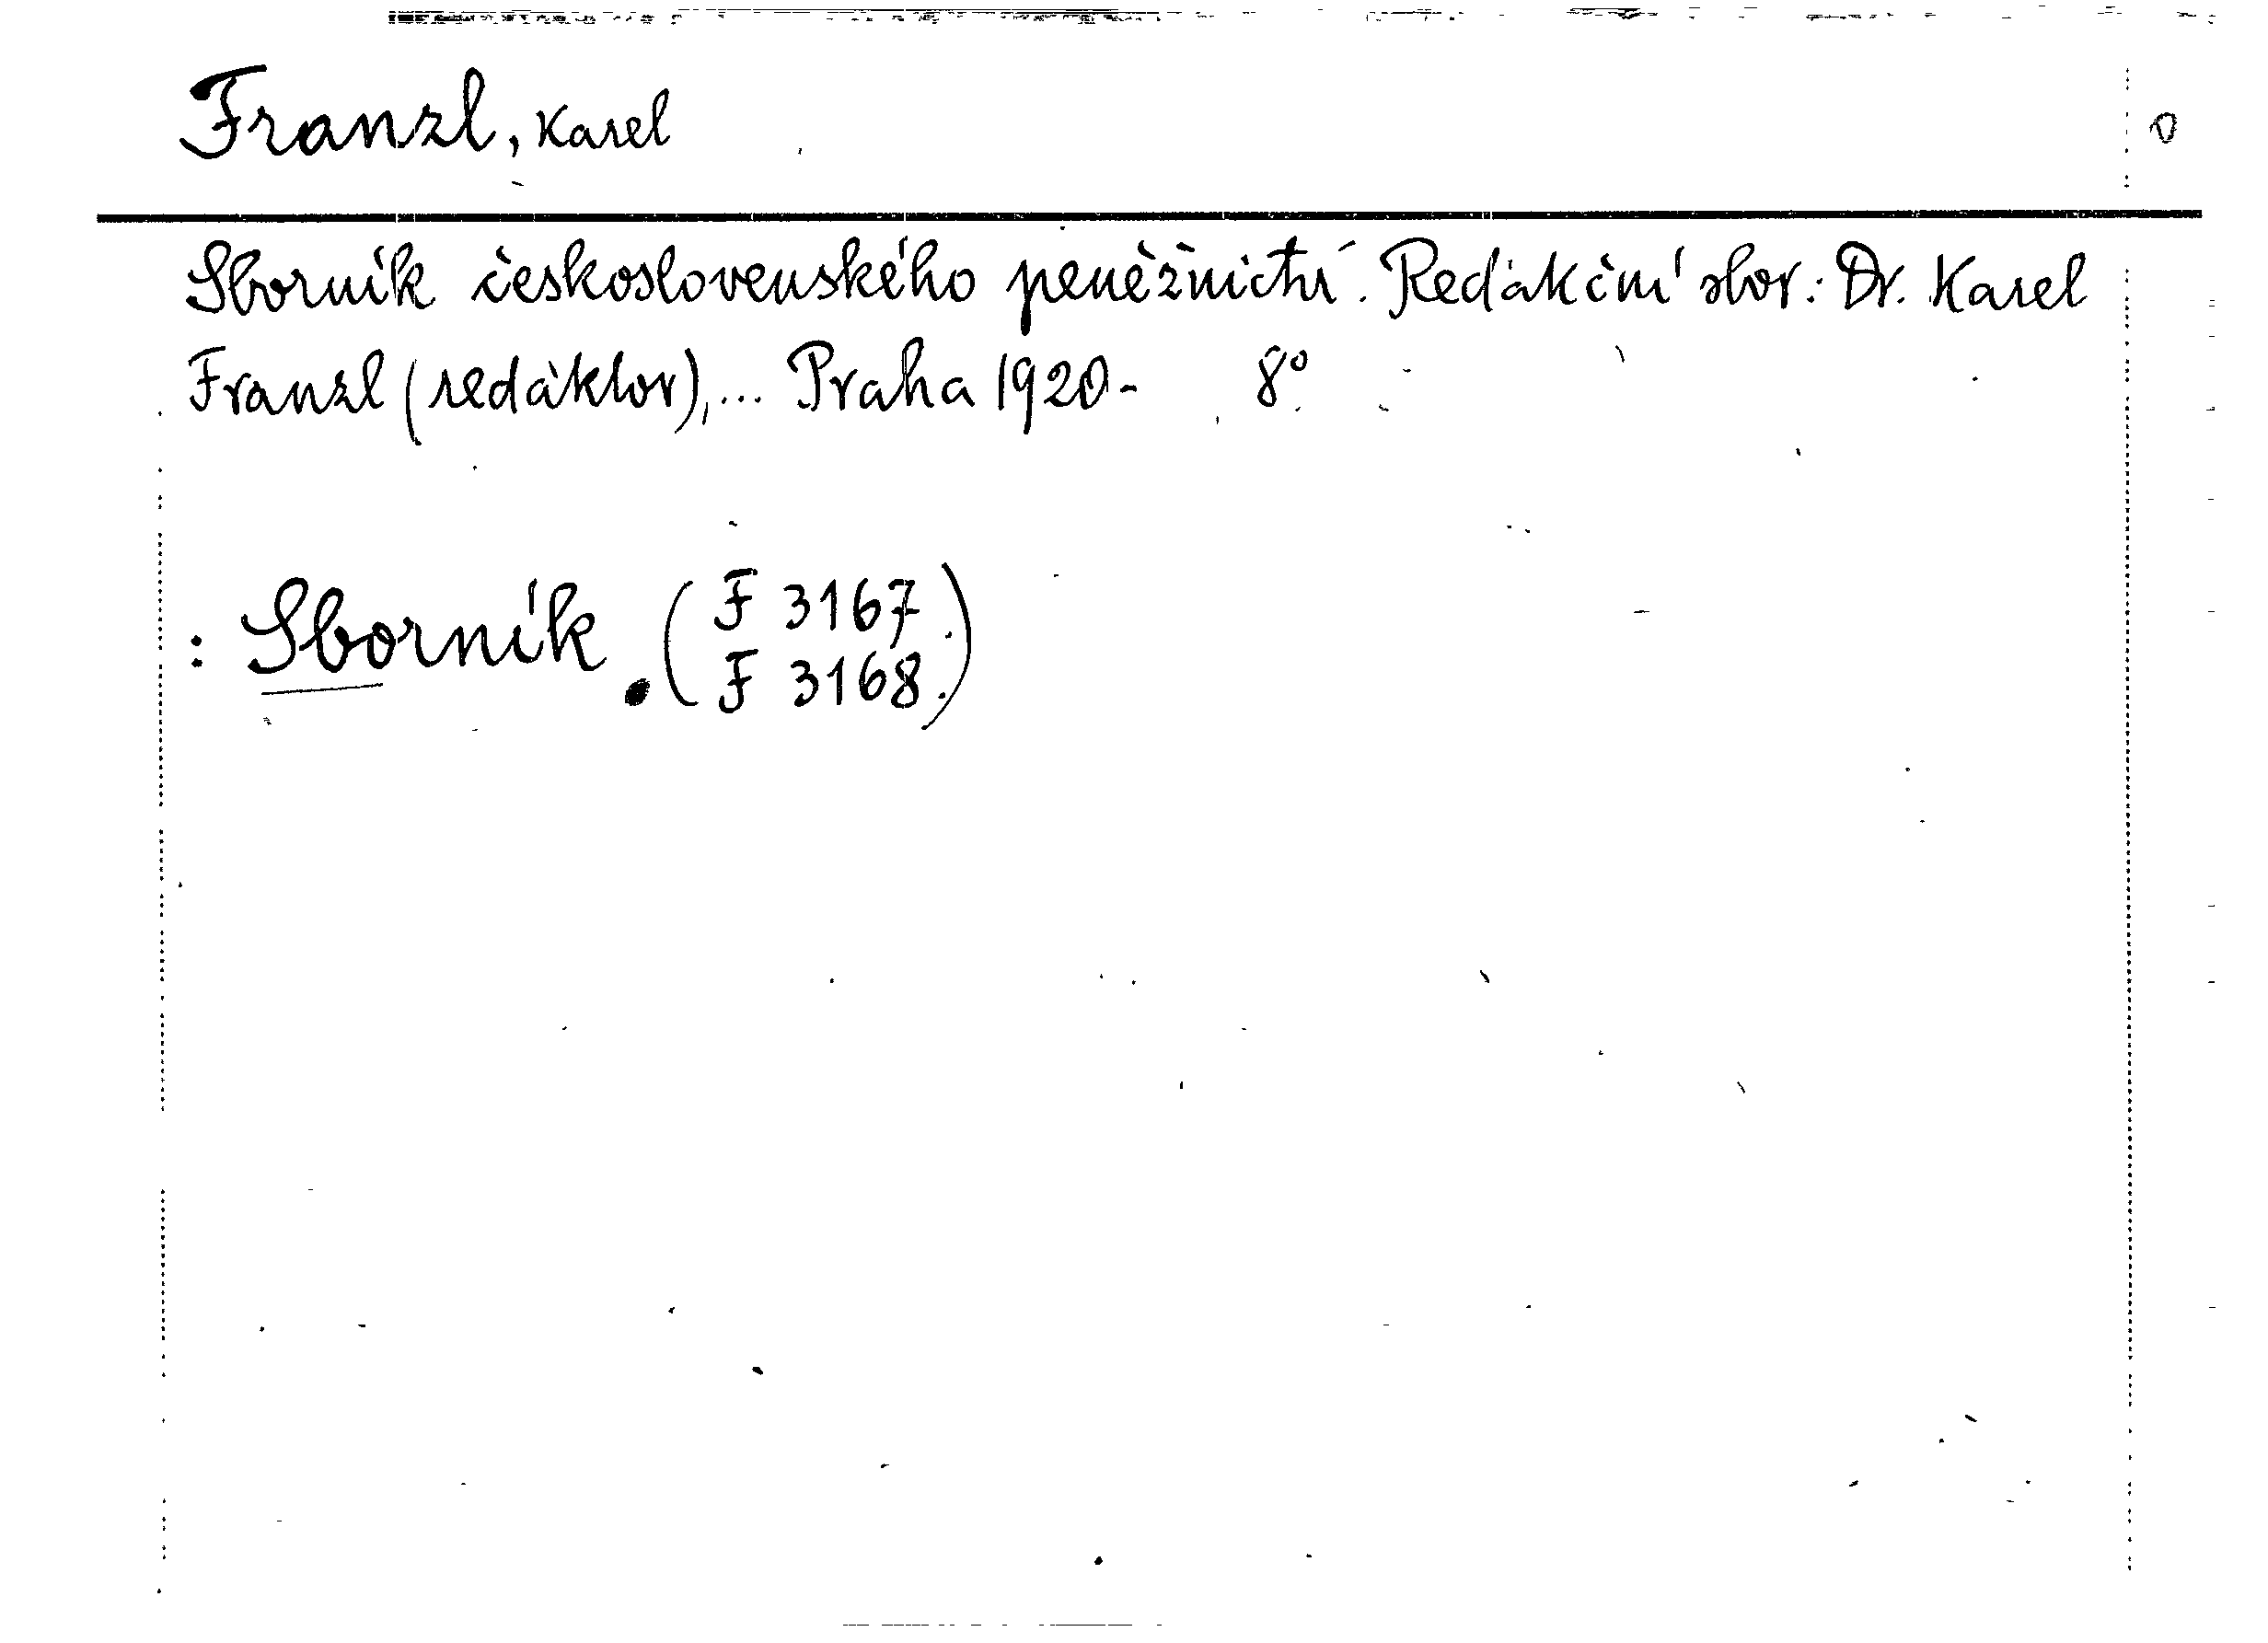 Franzl, Karel
Sborník československého peněžnictví. Redakční sbor: Dr. Karel
Franzl (redaktor),... Praha 1920- 8°
: Sborník. (F 3167.
F 3168.)